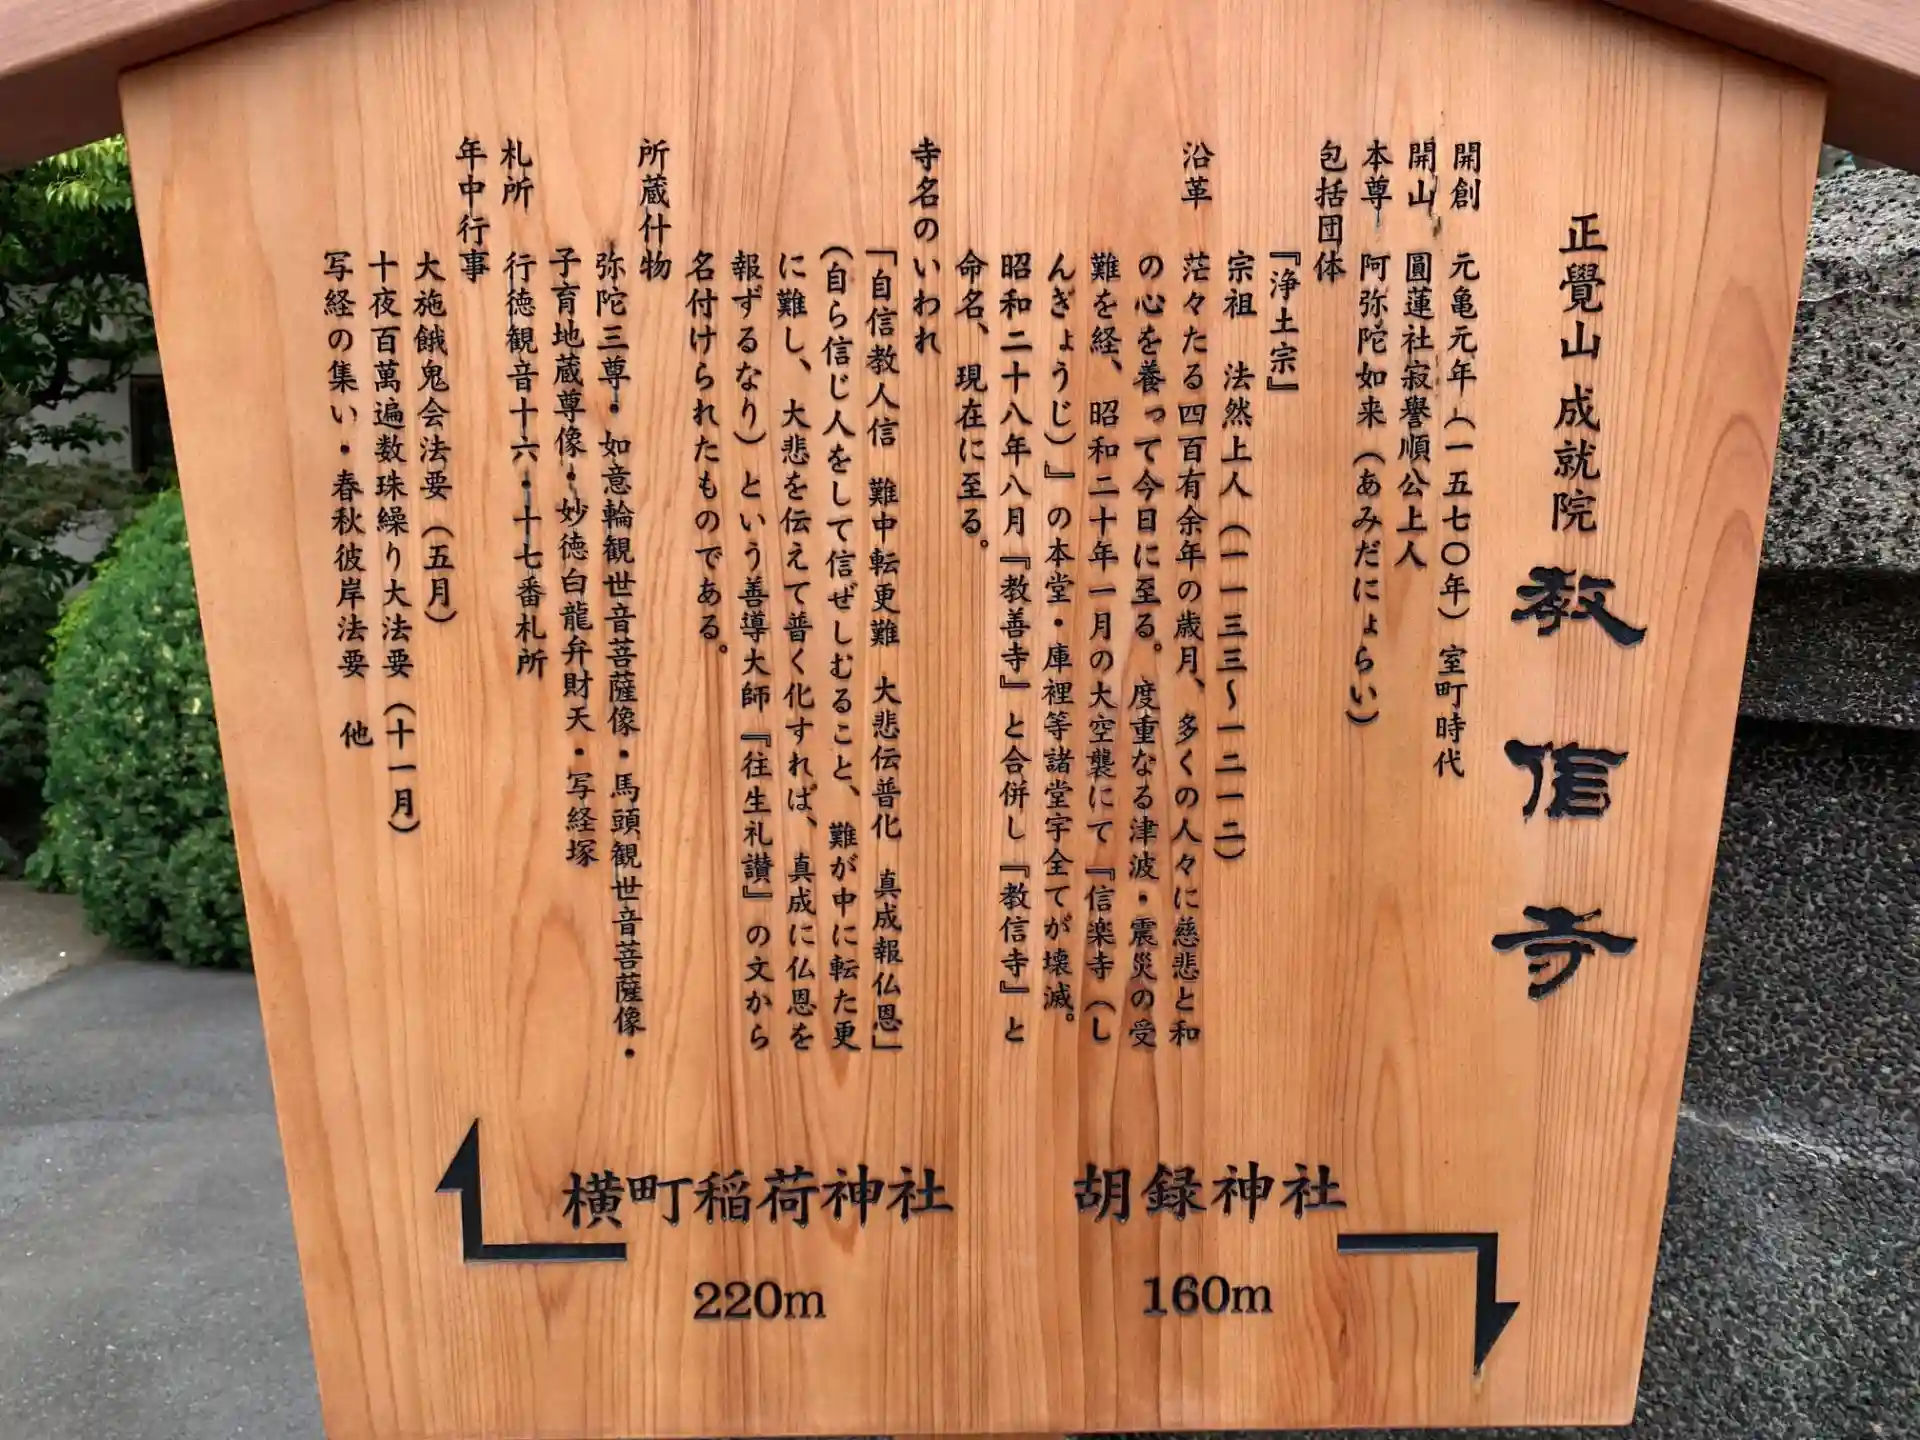 正覺山 成就院 教信寺
開創 元亀元年（一五七〇年）室町時代
開山 圓蓮社寂譽順公上人
本尊 阿弥陀如来（あみだにょらい）
包括団体
『浄土宗』
宗祖 法然上人（一一三三〜一二一二）
沿革 茫々たる四百有余年の歳月、多くの人々に慈悲と和
の心を養って今日に至る。度重なる津波・震災の受
難を経、昭和二十年一月の大空襲にて『信楽寺（し
んぎょうじ）』の本堂・庫裡等諸堂宇全てが壊滅。
昭和二十八年八月『教善寺』と合併し『教信寺』と
命名、現在に至る。
寺名のいわれ
「自信教人信 難中転更難 大悲伝普化 真成報仏恩」
（自ら信じ人をして信ぜしむること、難が中に転た更
に難し、大悲を伝えて普く化すれば、真成に仏恩を
報ずるなり）という善導大師『往生礼讃』の文から
名付けられたものである。
所蔵什物
弥陀三尊・如意輪観世音菩薩像・馬頭観世音菩薩像・
子育地蔵尊像・妙徳白龍弁財天・写経塚
札所 行徳観音十六・十七番札所
年中行事
大施餓鬼会法要（五月）
十夜百萬遍数珠繰り大法要（十一月）
写経の集い・春秋彼岸法要 他
横町稲荷神社
220m
胡録神社
160m